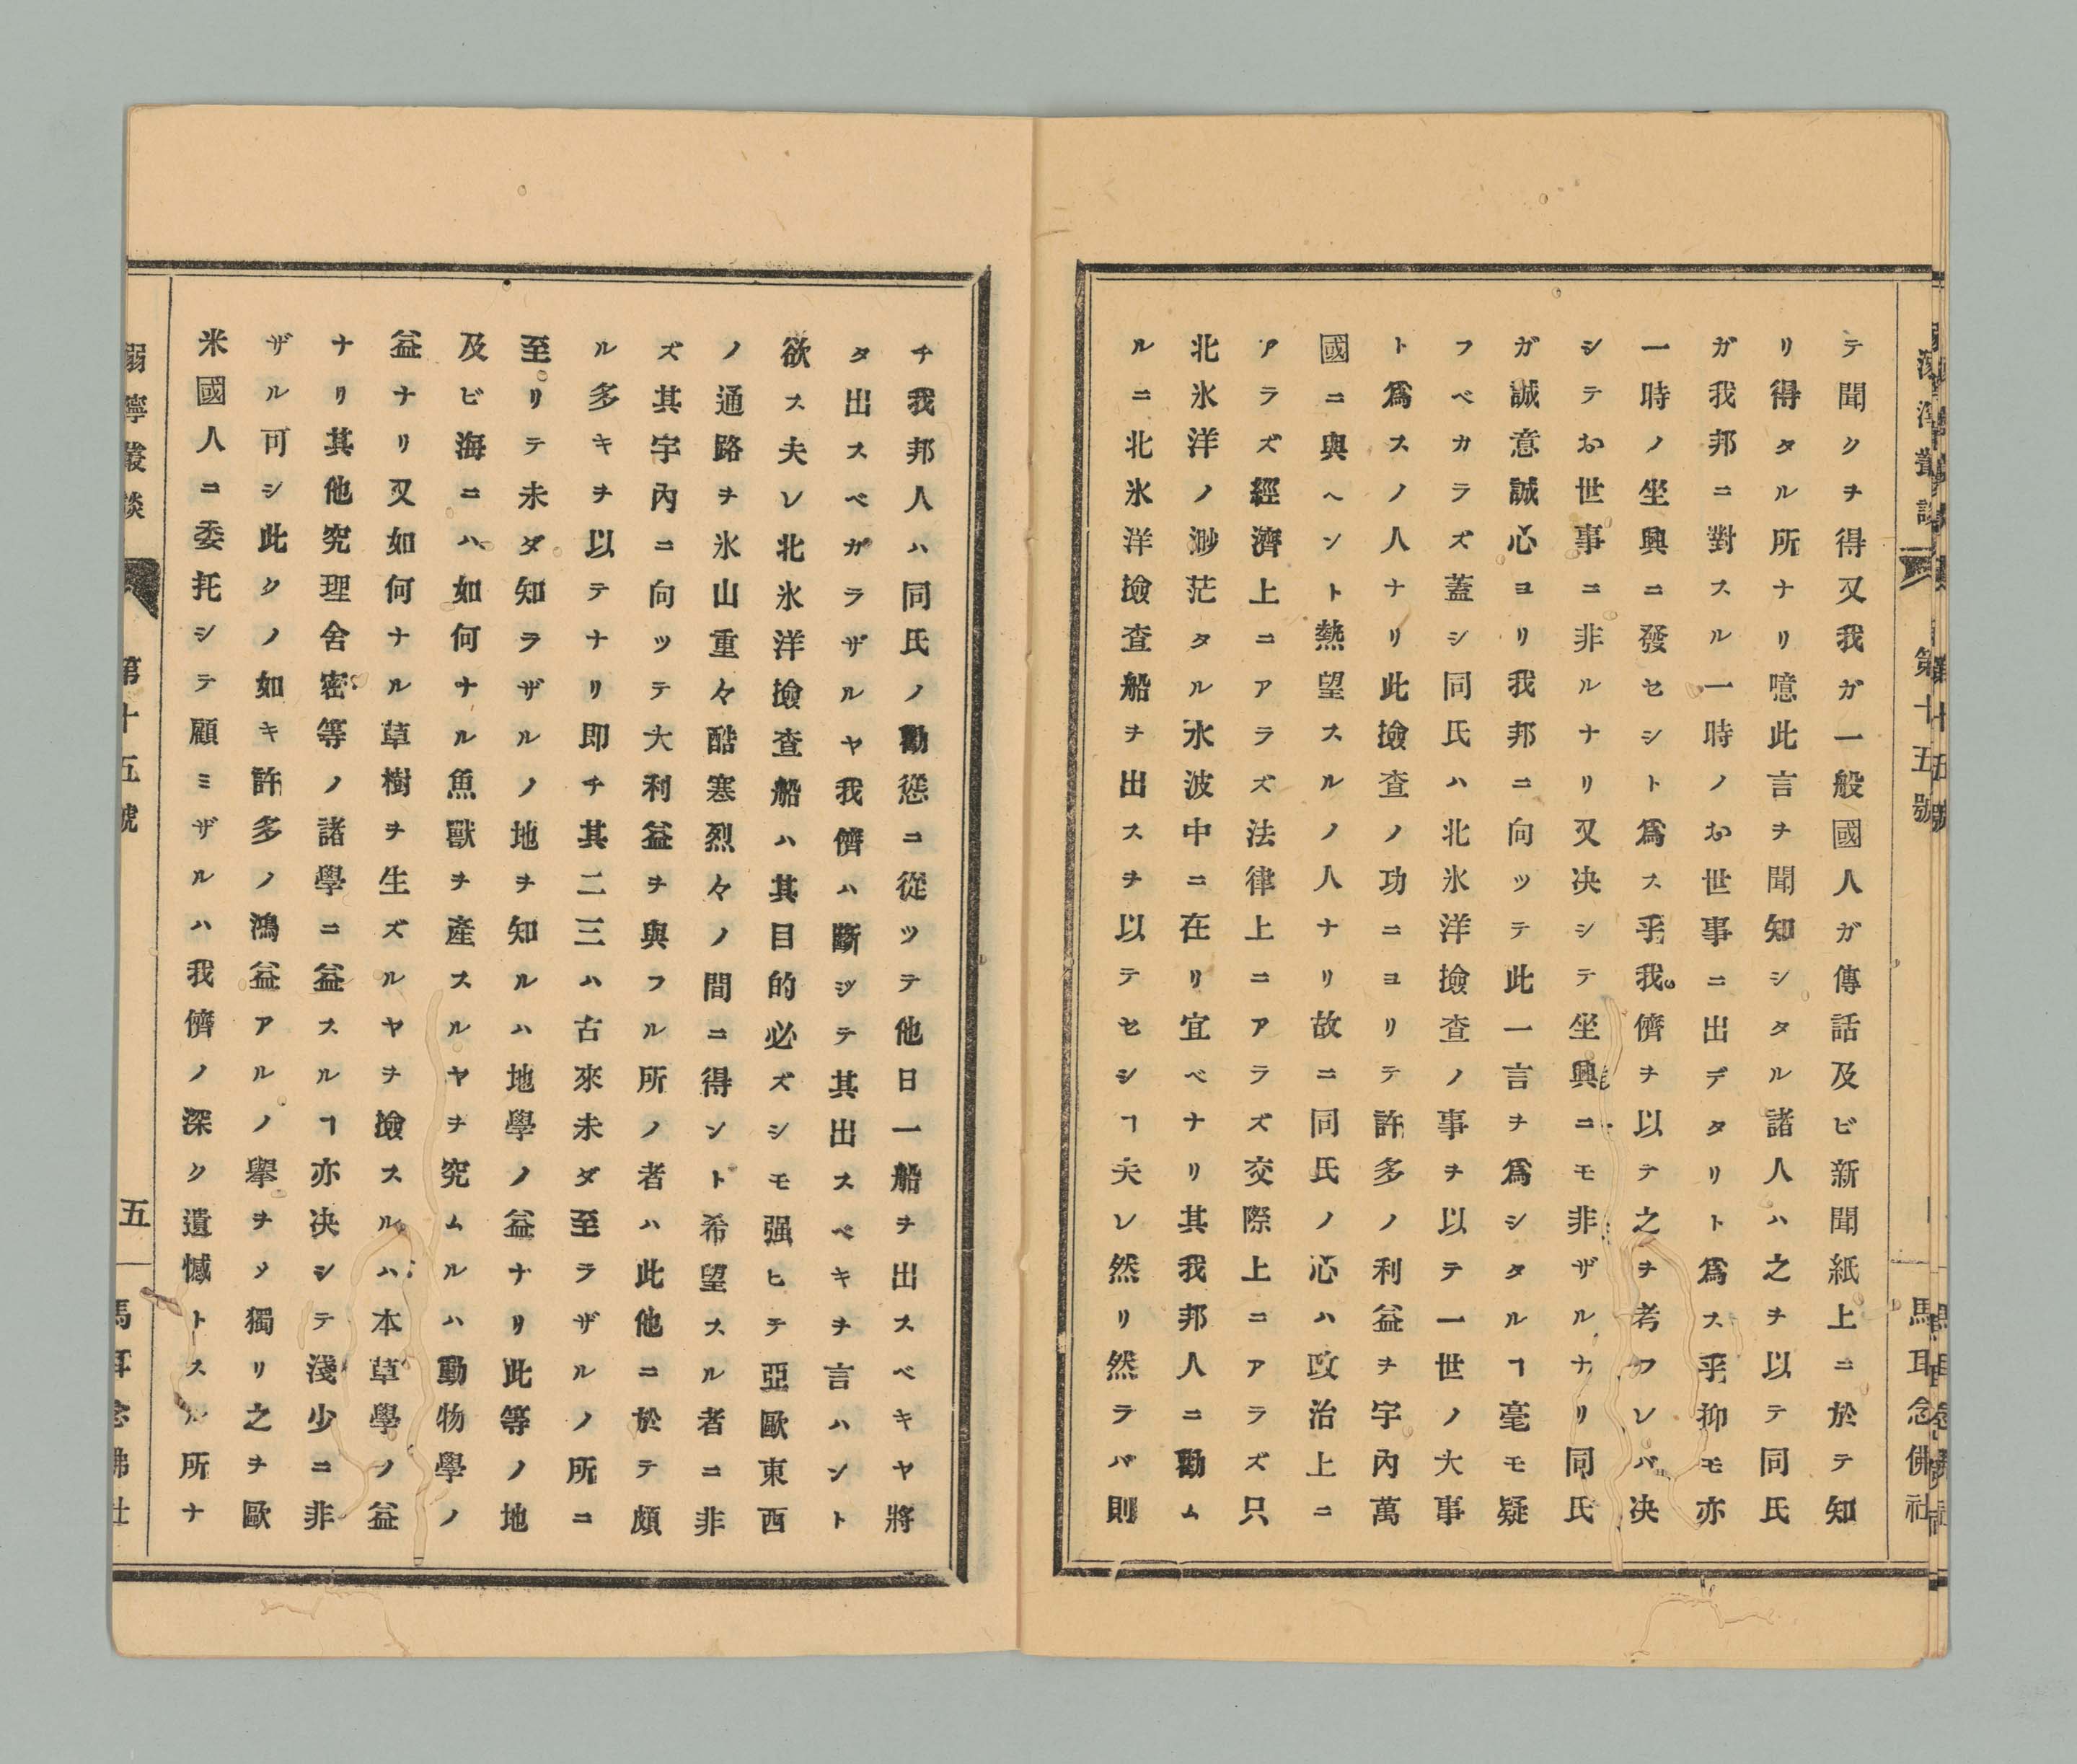 テ聞クヲ得又我ガ一般國人ガ傳話及ビ新聞紙上ニ於テ知
リ得タル所ナリ噫此言ヲ聞知シタル諸人ハ之ヲ以テ同氏
ガ我邦ニ對スル一時ノお世事ニ出デタリト爲ス乎抑モ亦
一時ノ坐興ニ發セシト爲ス乎我儕ヲ以テ之ヲ考フレバ决
シテお世事ニ非ルナリ又决シテ坐興ニモ非ザルナリ同氏
ガ誠意誠心ヨリ我邦ニ向ッテ此一言ヲ爲シタルヿ毫モ疑
フベカラズ蓋シ同氏ハ北氷洋撿査ノ事ヲ以テ一世ノ大事
ト爲スノ人ナリ此撿査ノ功ニヨリテ許多ノ利益ヲ宇內萬
國ニ與ヘント熱望スルノ人ナリ故ニ同氏ノ心ハ政治上ニ
アラズ經濟上ニアラズ法律上ニアラズ交際上ニアラズ只
北氷洋ノ渺茫タル水波中ニ在リ宜ベナリ其我邦人ニ勸ム
ルニ北氷洋撿査船ヲ出スヲ以テセシヿ夫レ然リ然ラバ則
チ我邦人ハ同氏ノ勸慫ニ從ッテ他日一船ヲ出スベキヤ將
タ出スベガラザルヤ我儕ハ斷ジテ其出スベキヲ言ハント
欲ス夫レ北氷洋撿査船ハ其目的必ズシモ强ヒテ亞歐東西
ノ通路ヲ氷山重々酷寒烈々ノ間ニ得ント希望スル者ニ非
ズ其宇內ニ向ッテ大利益ヲ與フル所ノ者ハ此他ニ於テ頗
ル多キヲ以テナリ即チ其二三ハ古來未ダ至ラザルノ所ニ
至リテ未ダ知ラザルノ地ヲ知ルハ地學ノ益ナリ此等ノ地
及ビ海ニハ如何ナル魚獸ヲ產スルヤヲ究ムルハ動物學ノ
益ナリ又如何ナル草樹ヲ生ズルヤヲ撿スルハ本草學ノ益
ナリ其他究理舍密等ノ諸學ニ益スルヿ亦决シテ淺少ニ非
ザル可シ此クノ如キ許多ノ鴻益アルノ擧ヲメ獨リ之ヲ歐
米國人ニ委托シテ顧ミザルハ我儕ノ深ク遺憾トスル所ナ
第十五號
五